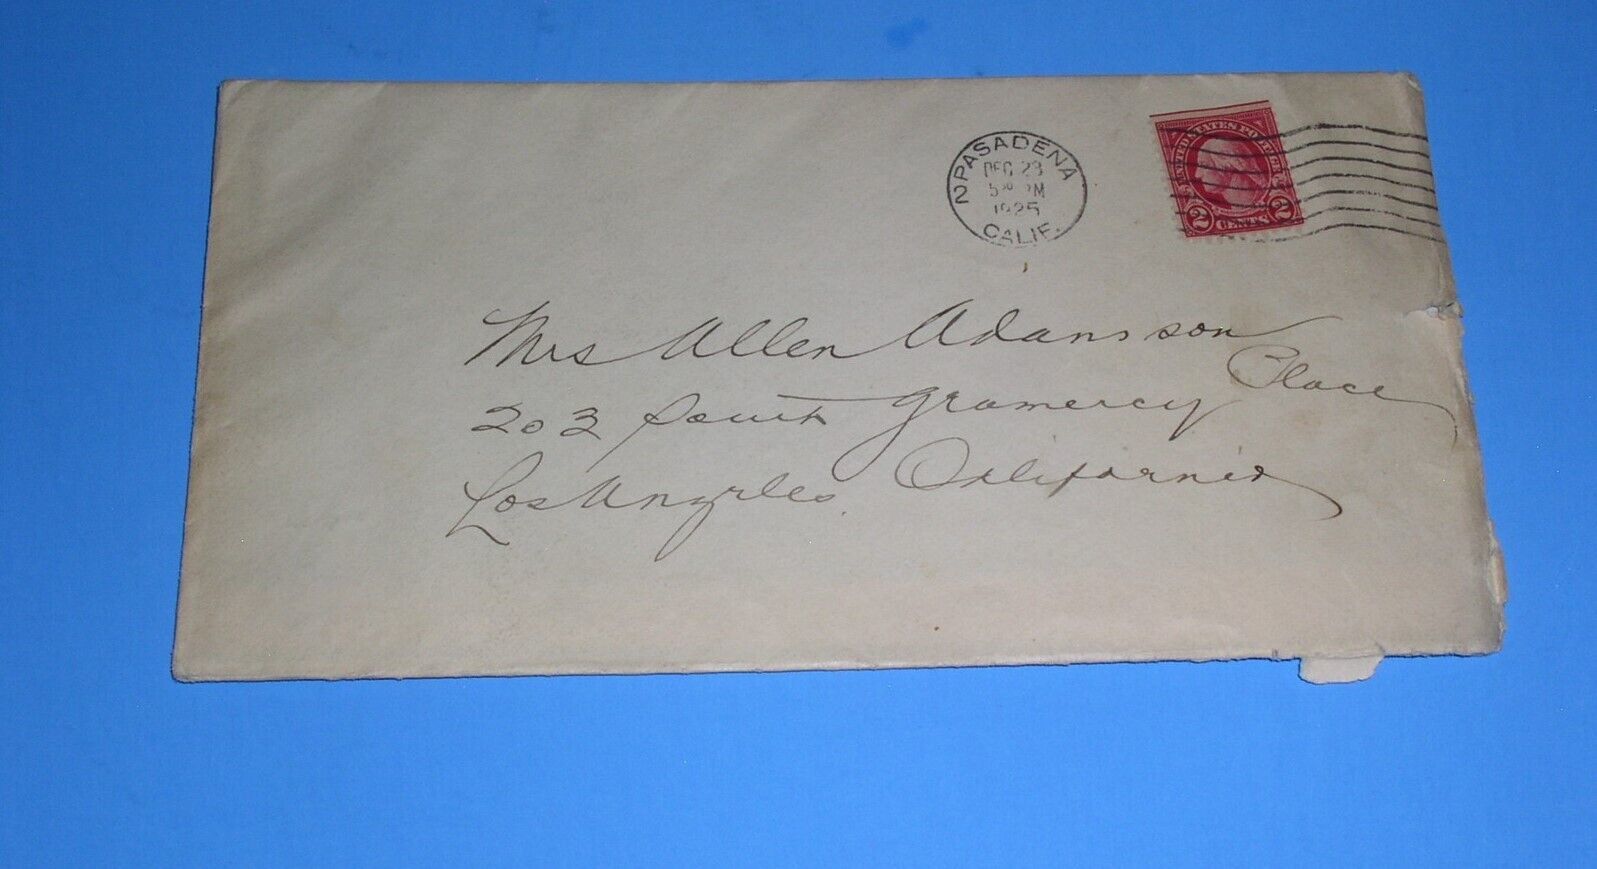 2 PASADENA
DEC 23
5 PM
1925
CALIF.
UNITED STATES POSTAGE
2 CENTS 2
Mrs Allen Adamsson
203 South Gramercy Place
Los Angeles California